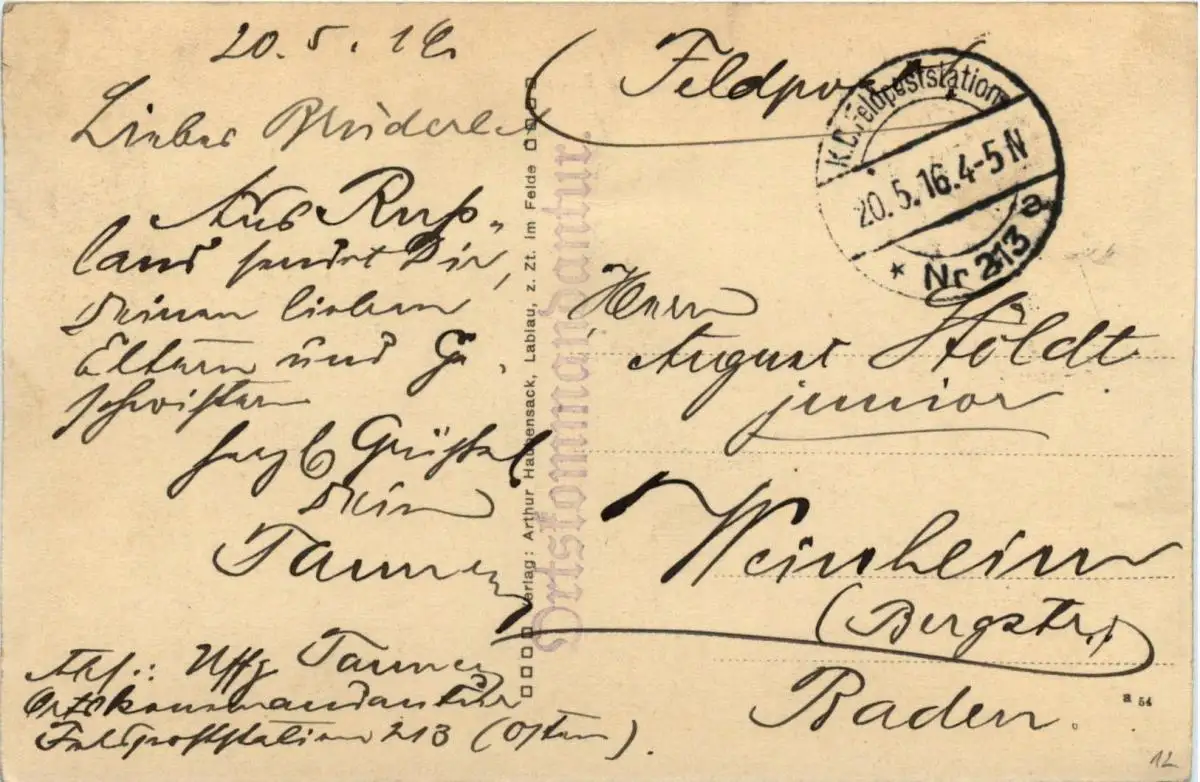 20.5.16.
Liebes Brüderle
Aus Ruß-
land sendet Dir,
Deinen lieben
Eltern und Ge-
schwistern
herzl. Grüße
Dein
Tanner
Abs.: Uffz Tanner
Ortskommandantur
Feldpoststation 213 (Osten).
Verlag: Arthur Hahnensack, Labiau, z. Zt. im Felde
Ortskommandantur.
(Feldpost)
K.D. Feldpoststation
20.5.16.4-5N
* Nr 213 a
Herrn
August Höldt
junior
Weinheim
(Bergstr.)
Baden.
a 54
12